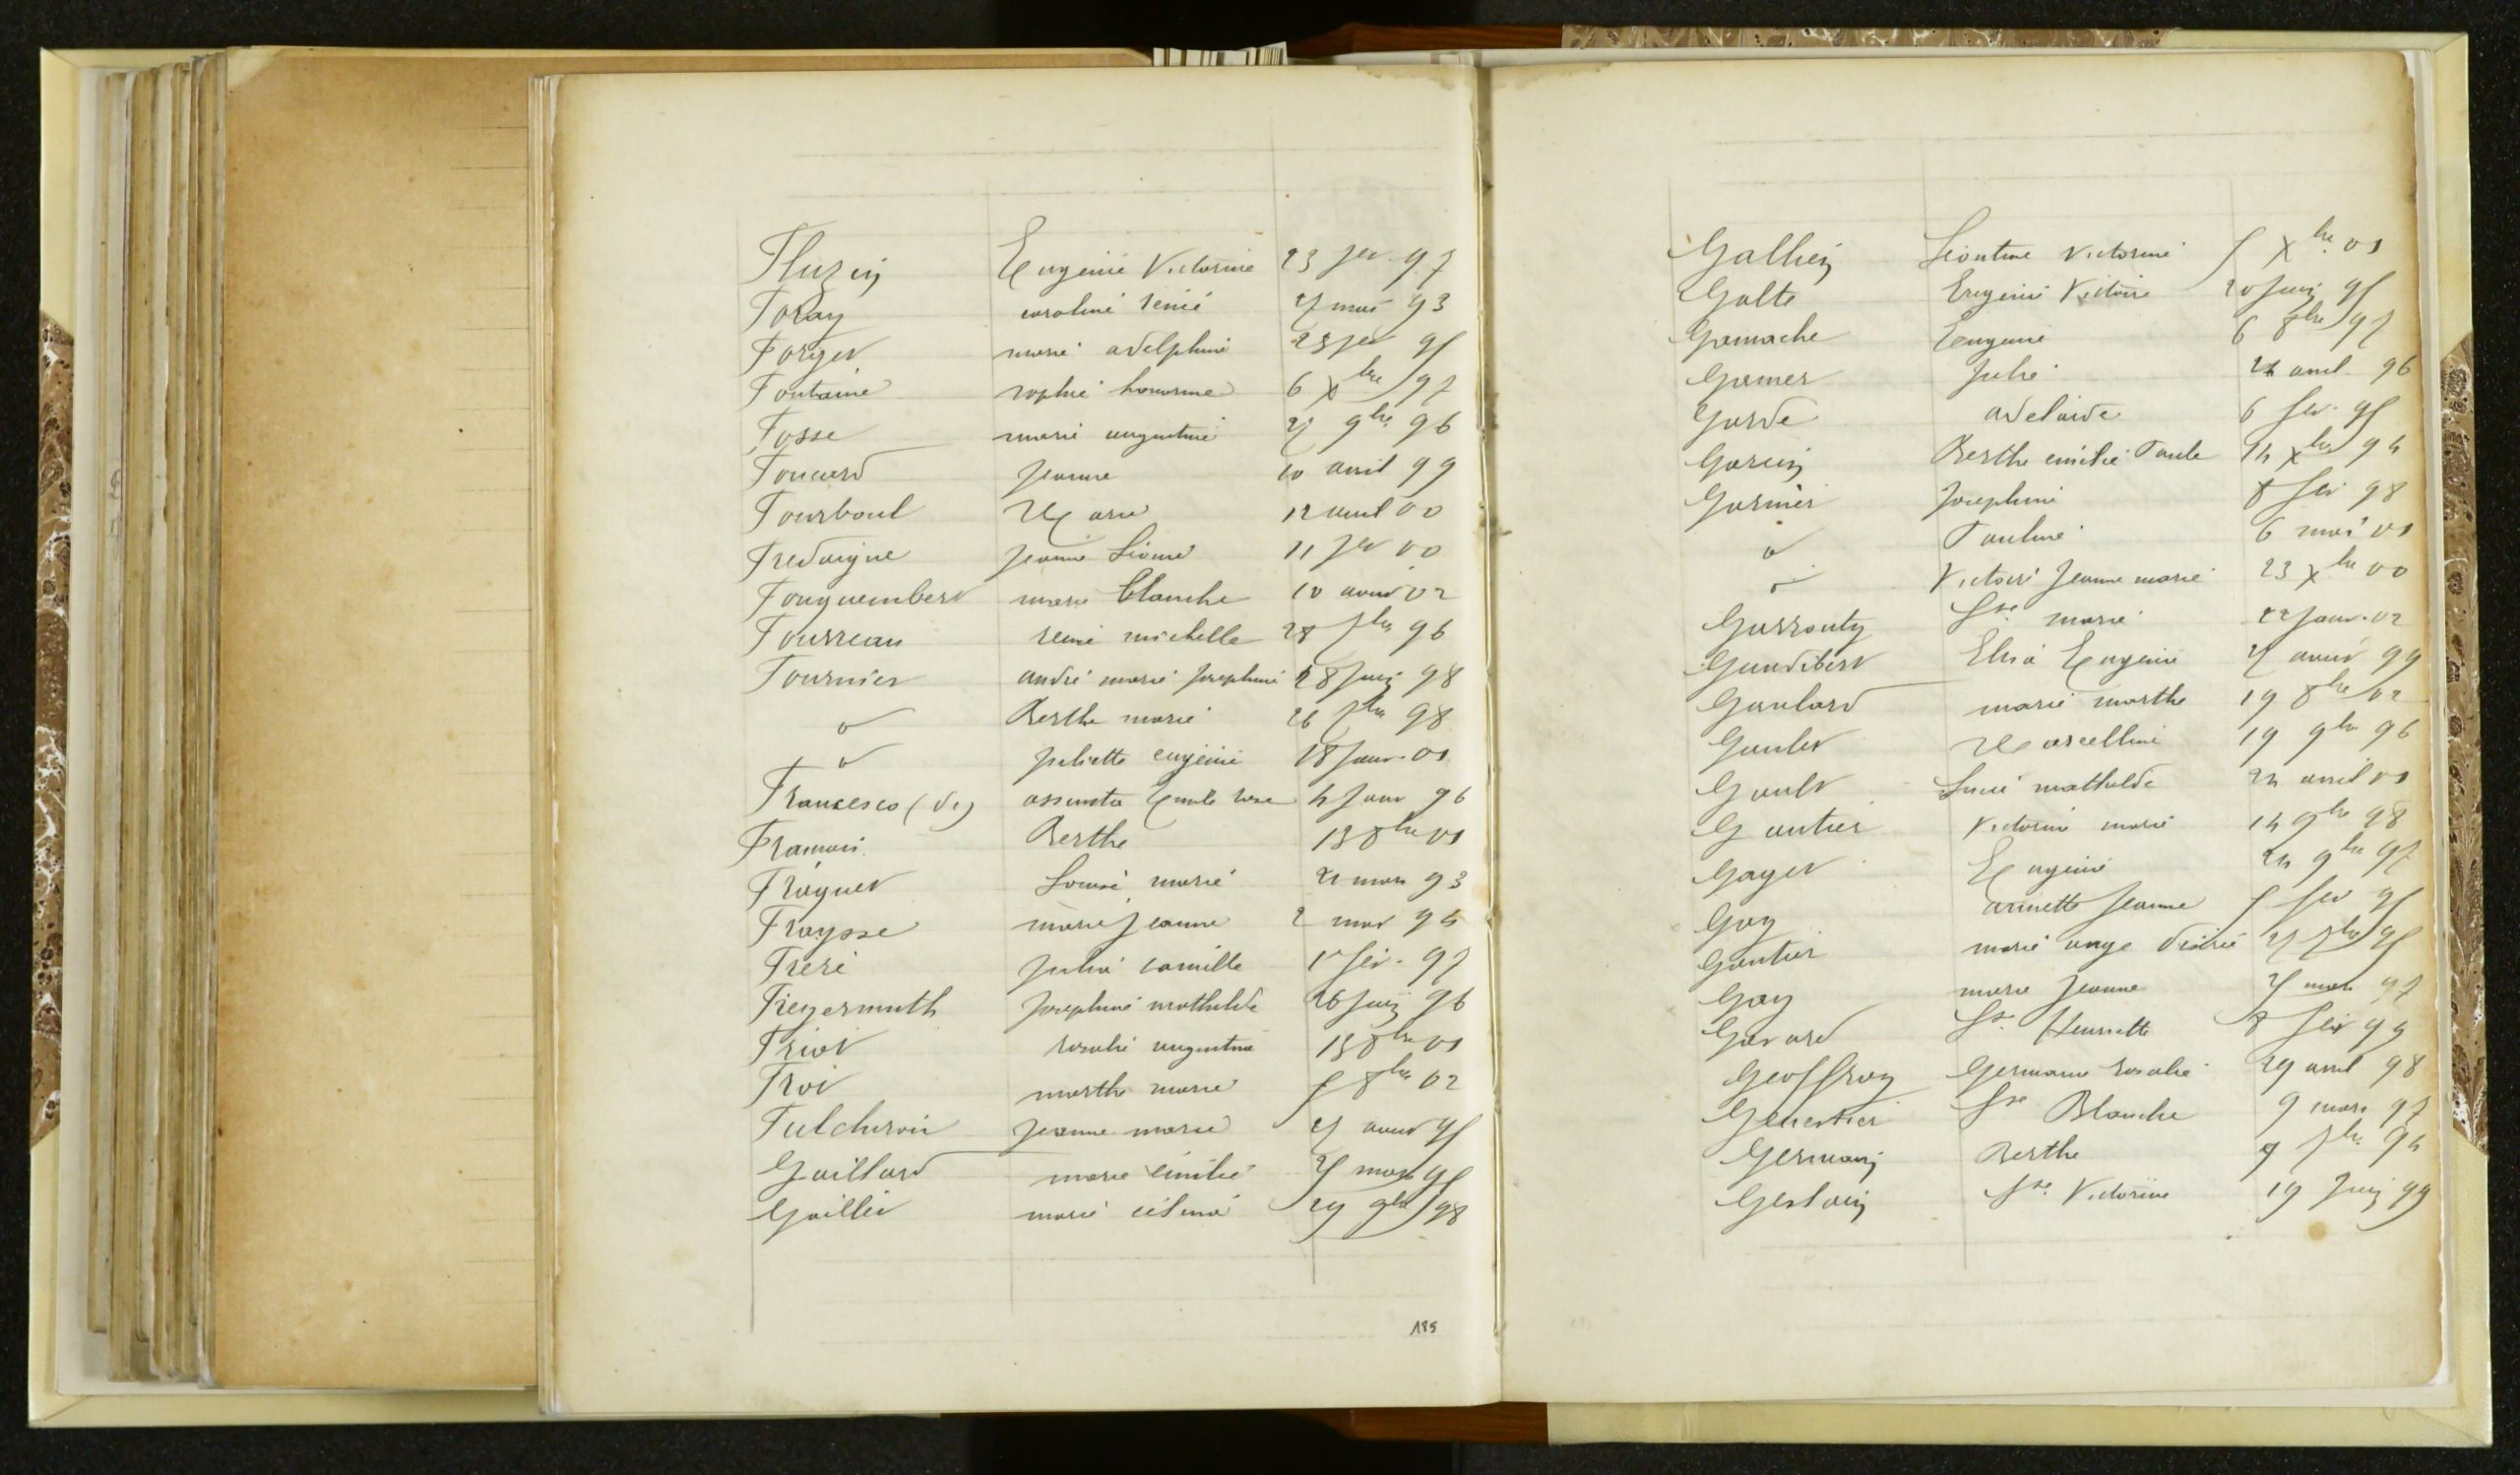 Fluzin Eugénie Victorine 23 fev. 97
Foray caroline renée 27 mai 93
Forget marie adelphine 25 fev 95
Fontaine sophie honorine 6 Xbre 97
Fosse marie augustine 25 9bre 96
Foucard Jeanne 10 avril 99
Fourboul Marie 12 avril 00
Fredaigue Jeanne Léonie 11 fev 00
Fouquembert marie blanche 10 aout 02
Fourreau reine michelle 28 7bre 96
Fournier andrée marie Josephine 28 Juin 98
d° Berthe marie 26 7bre 98
d° Juliette eugénie 18 Janv. 01
Francesco (de) assunta Emile rose 4 Janv 96
Berthe 13 8bre 01
Fraquet Louise marie 21 mars 93
Fraysse marie Jeanne 2 mars 94
Frere Julie camille 1er fév. 97
Freyermuth Josephine mathilde 26 Juin 96
Friot rosalie augustine 13 8bre 01
Frot marthe marie 5 8bre 02
Fulcheron Jeanne marie 25 aout 95
Gaillard marie émilie 25 mars 95
Gaillet marie célina 29 9bre 98
185
Gallien Léontine Victorine 5 Xbre 01
Galte Eugénie Victoire 20 Juin 95
Gamache Eugenie 6 8bre 97
Garner Julie avril 96
Garde adelaïde 6 fev. 95
Garcin Berthe emilie Paule 14 Xbre 94
Garnier Josephine 8 fév 98
d° Pauline 6 mai 01
d° Victoire Jeanne marie 23 Xbre 00
Garrouty Ste marie 22 Janv. 02
Gaudibert Elisa Eugénie 25 aout 99
Gaulard marie marthe 19 8bre 02
Gaulet Marcelline 19 9bre 96
Gault Lucie mathilde 24 avril 01
Gautier Victorine marie 14 9bre 98
Gayet Eugénie 24 9bre 97
Gay annette Jeanne 5 fev 95
Gautier marie ange désirée 25 7bre 95
Gay marie Jeanne 25 mars 97
Gavard Ste Henriette 8 fév 99
Geoffroy Germaine rosalie 29 avril 98
Genestier Ste Blanche 9 mars 97
Germain Berthe 9 7bre 94
Gestain Ste Victorine 19 Juin 99